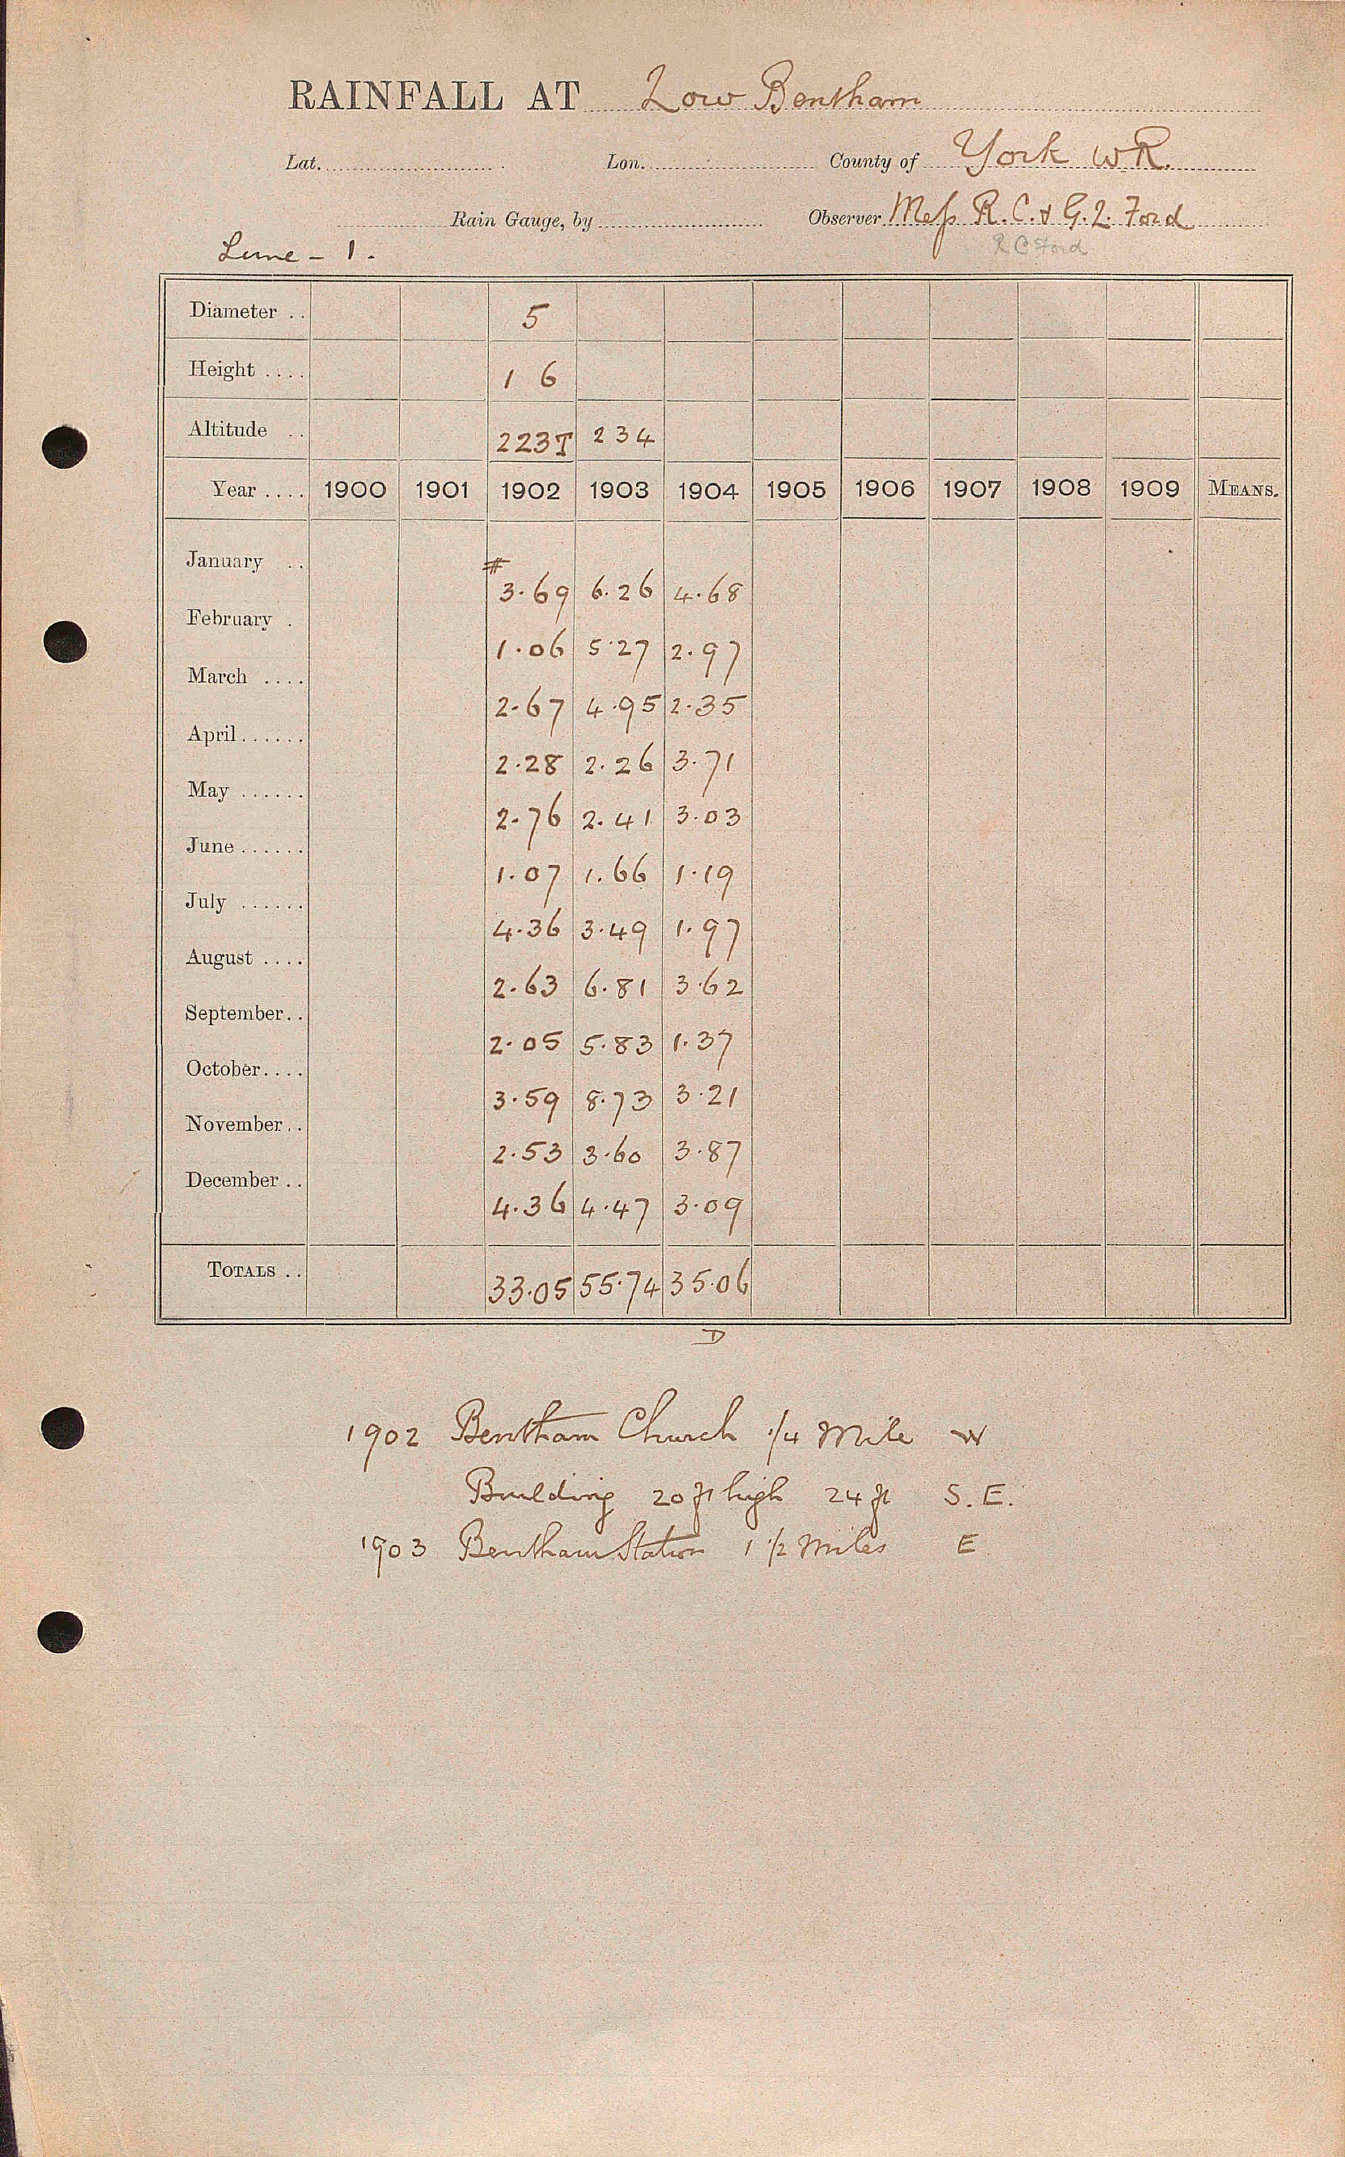 RAINFALL AT Low Bentham
Lat. Lon. County of York W R.
Rain Gauge, by Observer Mess R. C. & G. L. Ford
R C Ford
Lune - 1.
Diameter .. 5
Height .... 1 6
Altitude .. 223T 234
Year .... 1900 1901 1902 1903 1904 1905 1906 1907 1908 1909 MEANS.
January .. # 3.69 6.26 4.68
February . 1.06 5.27 2.97
March .... 2.67 4.95 2.35
April ...... 2.28 2.26 3.71
May ...... 2.76 2.41 3.03
June ...... 1.07 1.66 1.19
July ...... 4.36 3.49 1.97
August .... 2.63 6.81 3.62
September.. 2.05 5.83 1.37
October.... 3.59 8.73 3.21
November.. 2.53 3.60 3.87
December .. 4.36 4.47 3.09
TOTALS .. 33.05 55.74 35.06
D
1902 Bentham Church 1/4 Mile W
Building 20 ft high 24 ft S. E.
1903 Bentham Station 1 1/2 Miles E